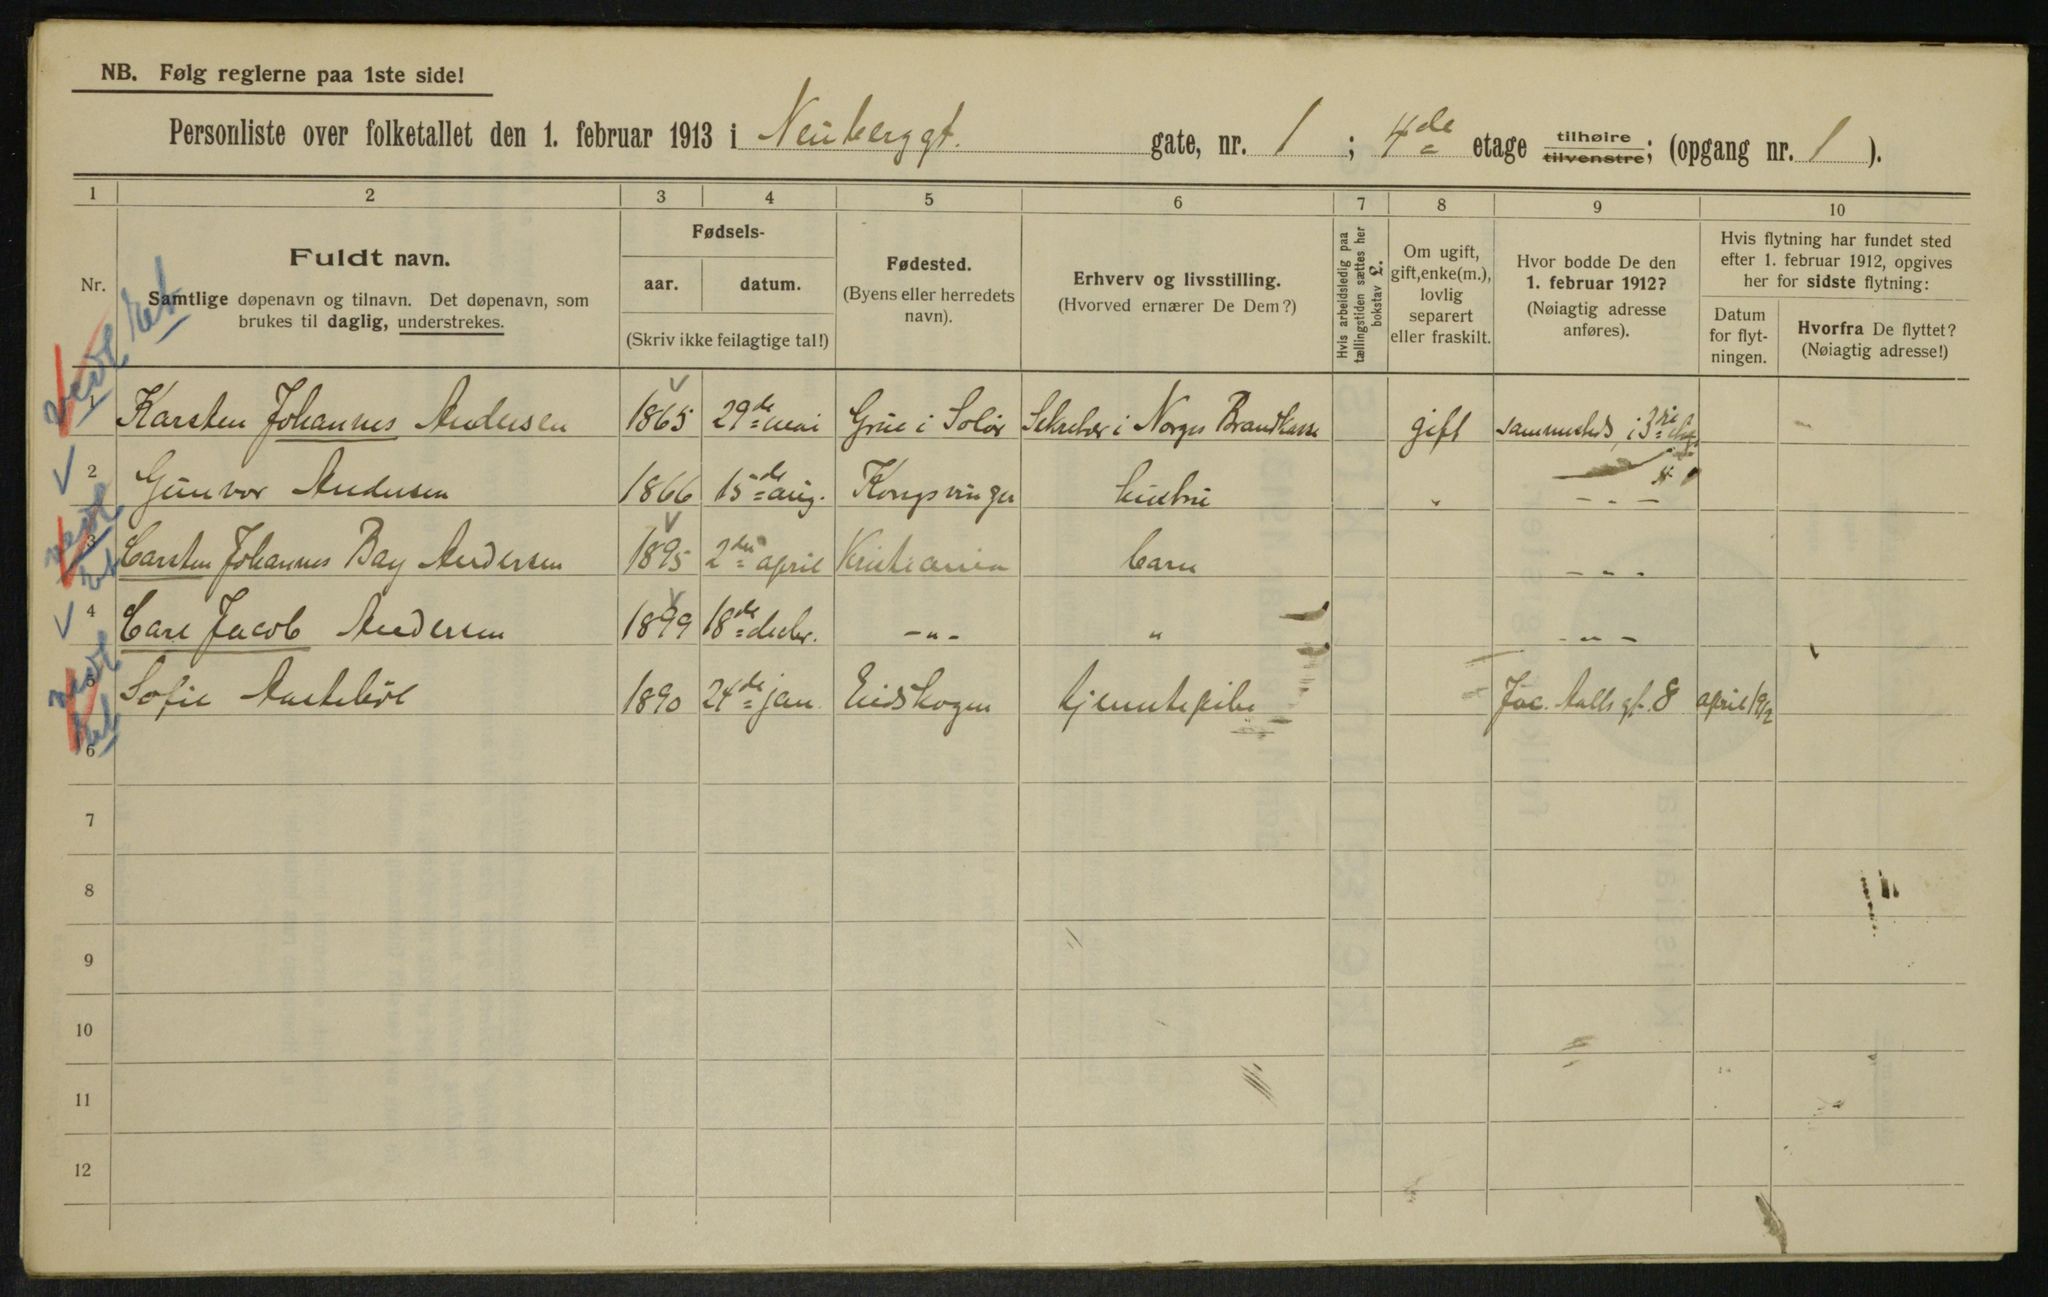 NB. Følg reglerne paa 1ste side!
Personliste over folketallet den 1. februar 1913 i Neuberggt. gate, nr. 1 ; 4de etage tilhøire tilvenstre; (opgang nr. 1 ).
1 2 3 4 5 6 7 8 9 10
Nr.
Fuldt navn.
Samtlige døpenavn og tilnavn. Det døpenavn, som
brukes til daglig, understrekes.
Fødsels-
aar. datum.
(Skriv ikke feilagtige tal!)
Fødested.
(Byens eller herredets
navn).
Erhverv og livsstilling.
(Hvorved ernærer De Dem?)
Hvis arbeidsledig paa
tællingstiden sættes her
bokstav L.
Om ugift,
gift, enke(m.),
lovlig
separert
eller fraskilt.
Hvor bodde De den
1. februar 1912?
(Nøiagtig adresse
anføres).
Hvis flytning har fundet sted
efter 1. februar 1912, opgives
her for sidste flytning:
Datum
for flyt-
ningen.
Hvorfra De flyttet?
(Nøiagtig adresse!)
1 Karsten Johannes Andersen 1865 29de mai Grue i Solør Sekretær i Norges Brandkasse gift sammesteds i 3die
2 Gunvor Andersen 1866 15de aug. Kongsvinger hustru " - " -
3 Carsten Johannes Bay Andersen 1895 2den april Kristiania barn - " -
4 Carl Jacob Andersen 1899 18de decbr. - " - " - " -
5 Sofie 1890 24de jan. Eidskogen tjenestepike Jac. Aalls gt. 8 april 1912
6
7
8
9
10
11
12